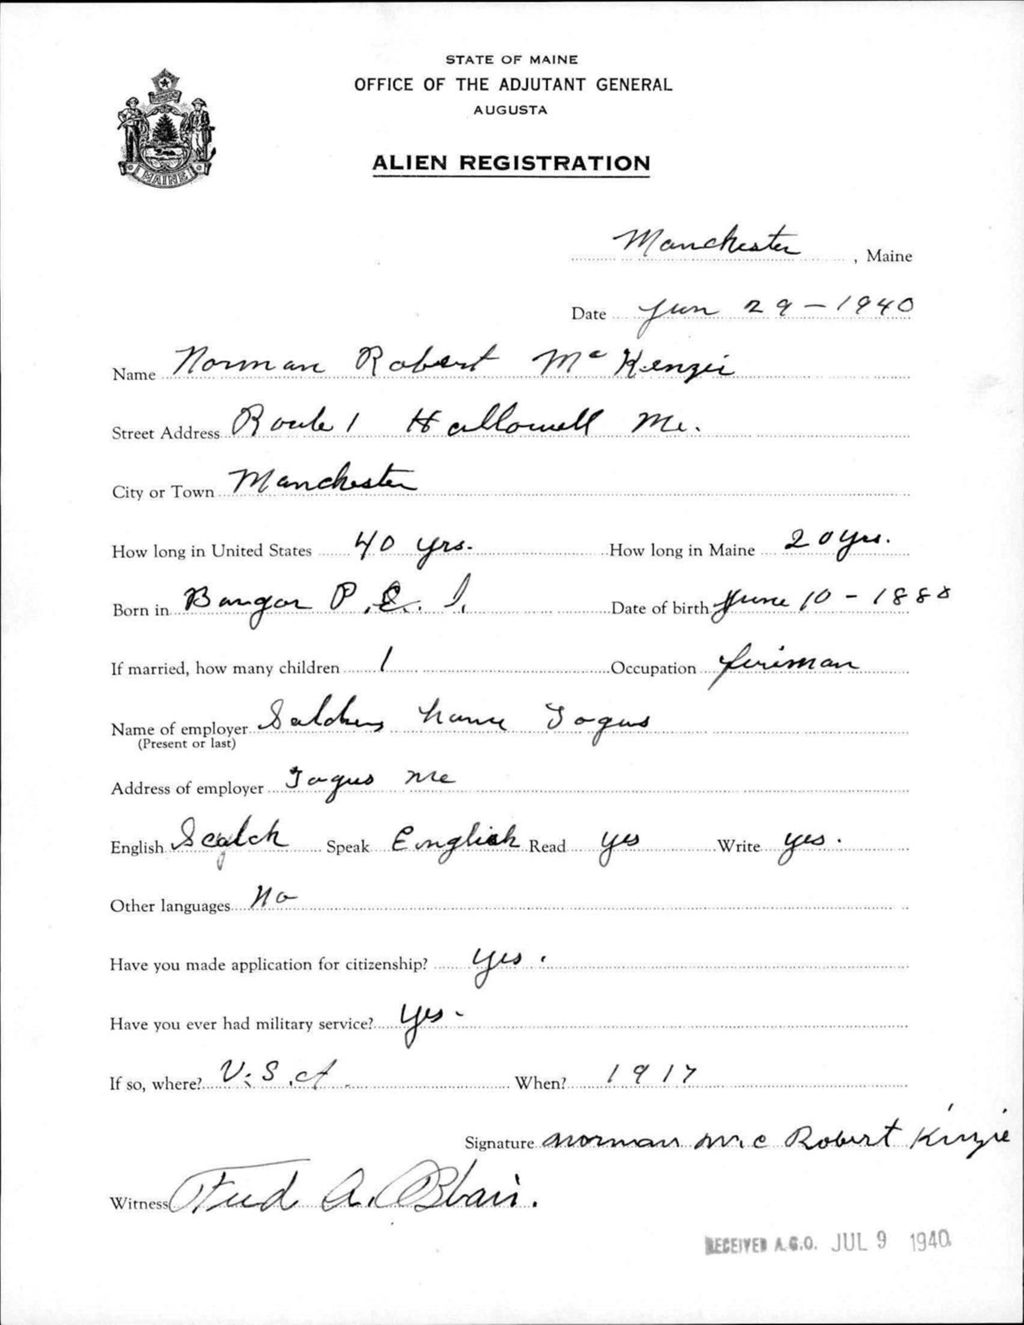 STATE OF MAINE
OFFICE OF THE ADJUTANT GENERAL
AUGUSTA
ALIEN REGISTRATION
MAINE
Manchester, Maine
Date Jun 29 - 1940
Name Norman Robert McKenzie
Street Address Route 1 Hallowell Me.
City or Town Manchester
How long in United States 40 yrs. How long in Maine 20 yrs.
Born in Bangor P.E.I. Date of birth June 10 - 1888
If married, how many children 1 Occupation fireman
Name of employer Home Togus
(Present or last)
Address of employer Togus Me
English Scotch Speak English Read yes Write yes.
Other languages No
Have you made application for citizenship? yes.
Have you ever had military service? yes-
If so, where? U.S.A. When? 1917
Signature Norman Mc Robert Kinzie
Witness Fred A. Blair.
RECEIVED A.G.O. JUL 9 1940